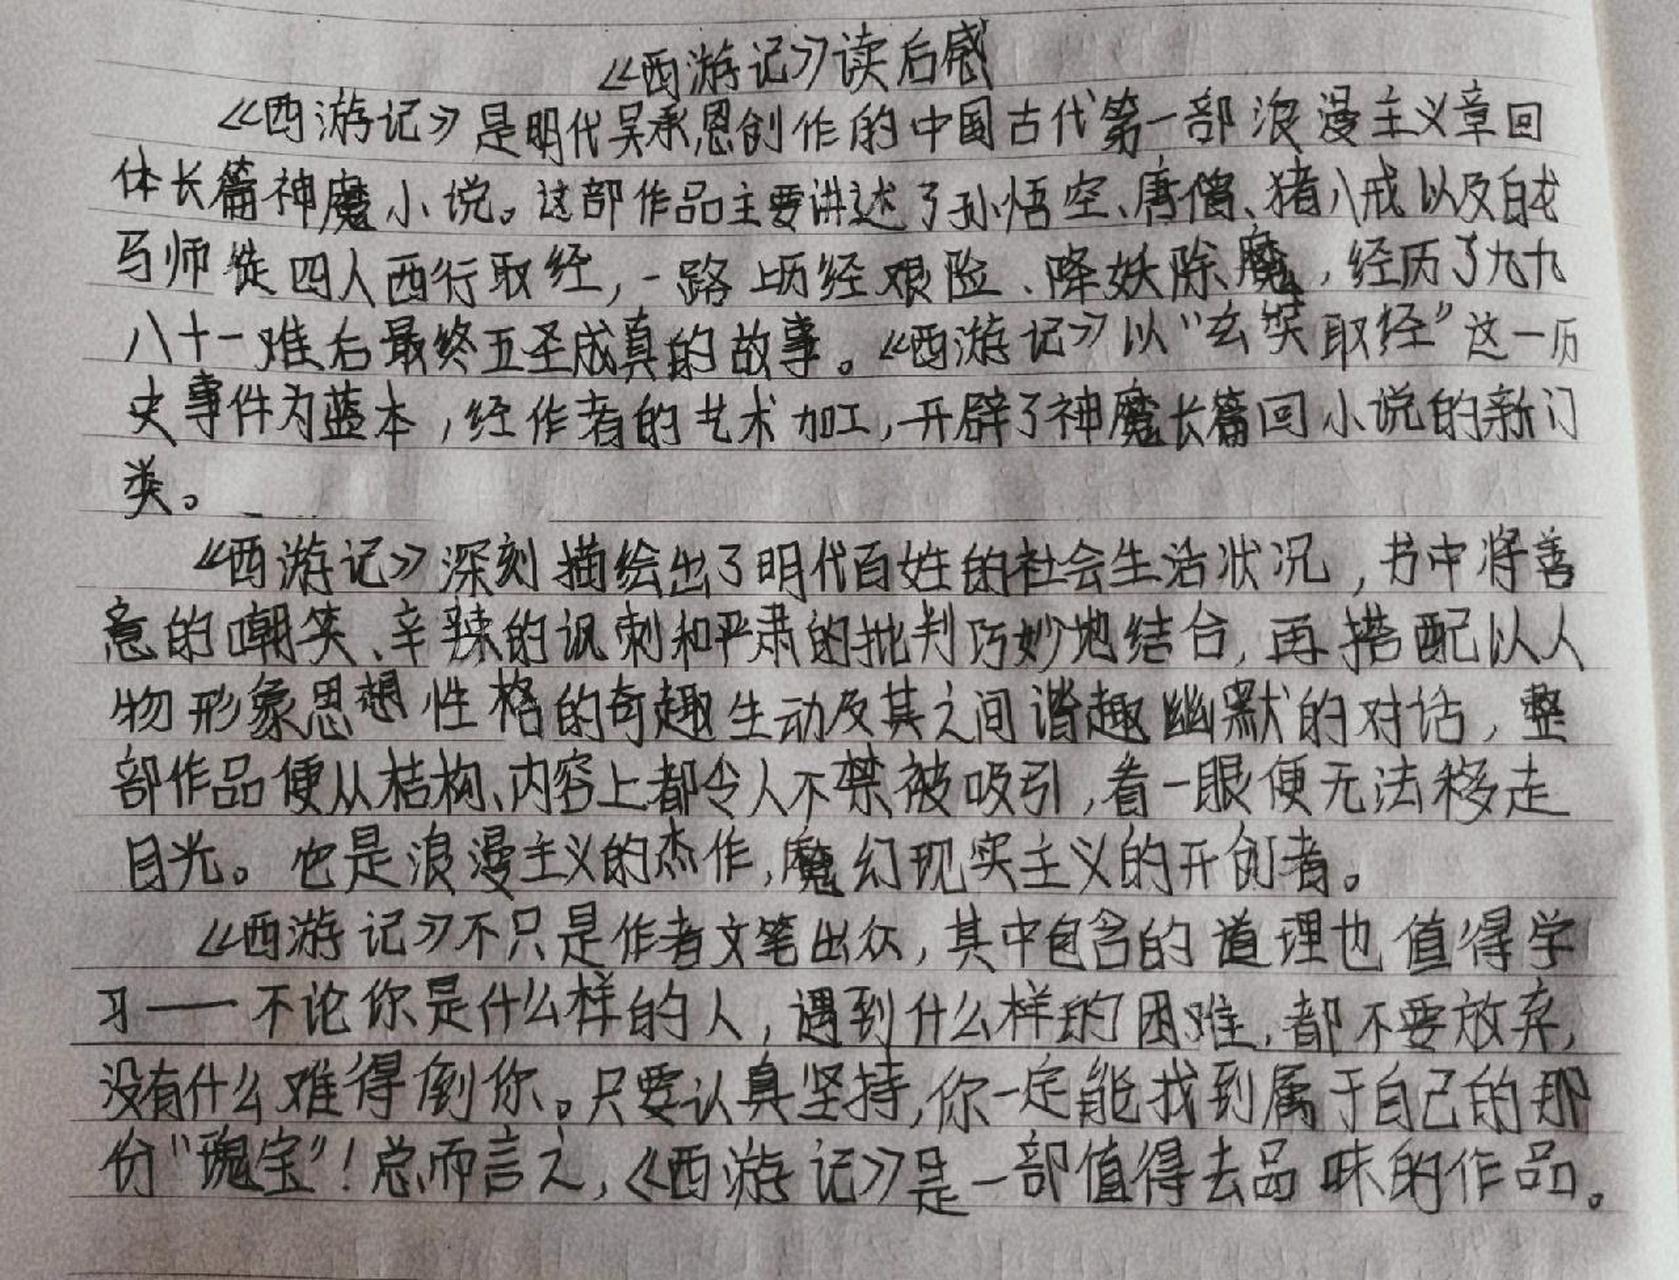 《西游记》读后感
《西游记》是明代吴承恩创作的中国古代第一部浪漫主义章回
体长篇神魔小说。这部作品主要讲述了孙悟空、唐僧、猪八戒以及白龙
马师徒四人西行取经,一路上历经艰险、降妖除魔,经历了九九
八十一难后最终五圣成真的故事。《西游记》以“玄奘取经”这一历
史事件为蓝本,经作者的艺术加工,开辟了神魔长篇回小说的新门
类。
《西游记》深刻描绘出了明代百姓的社会生活状况,书中将善
意的嘲笑、辛辣的讽刺和严肃的批判巧妙地结合,再搭配以人
物形象思想性格的奇趣生动及其之间谐趣幽默的对话,整
部作品便从结构、内容上都令人不禁被吸引,看一眼便无法移走
目光。它是浪漫主义的杰作,魔幻现实主义的开创者。
《西游记》不只是作者文笔出众,其中包含的道理也值得学
习——不论你是什么样的人,遇到什么样的困难,都不要放弃,
没有什么难得倒你。只要认真坚持,你一定能找到属于自己的那
份“瑰宝”!总而言之,《西游记》是一部值得去品味的作品。